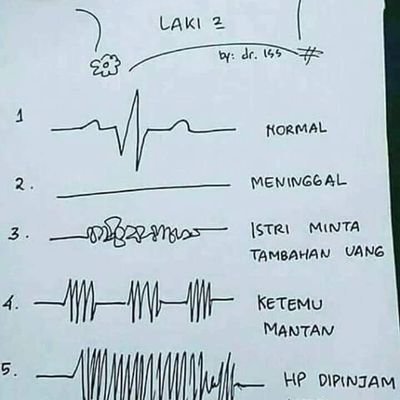 LAKI 2
by: dr. ISS
1
NORMAL
2.
MENINGGAL
3.
ISTRI MINTA
TAMBAHAN UANG
4.
KETEMU
MANTAN
5.
HP DIPINJAM